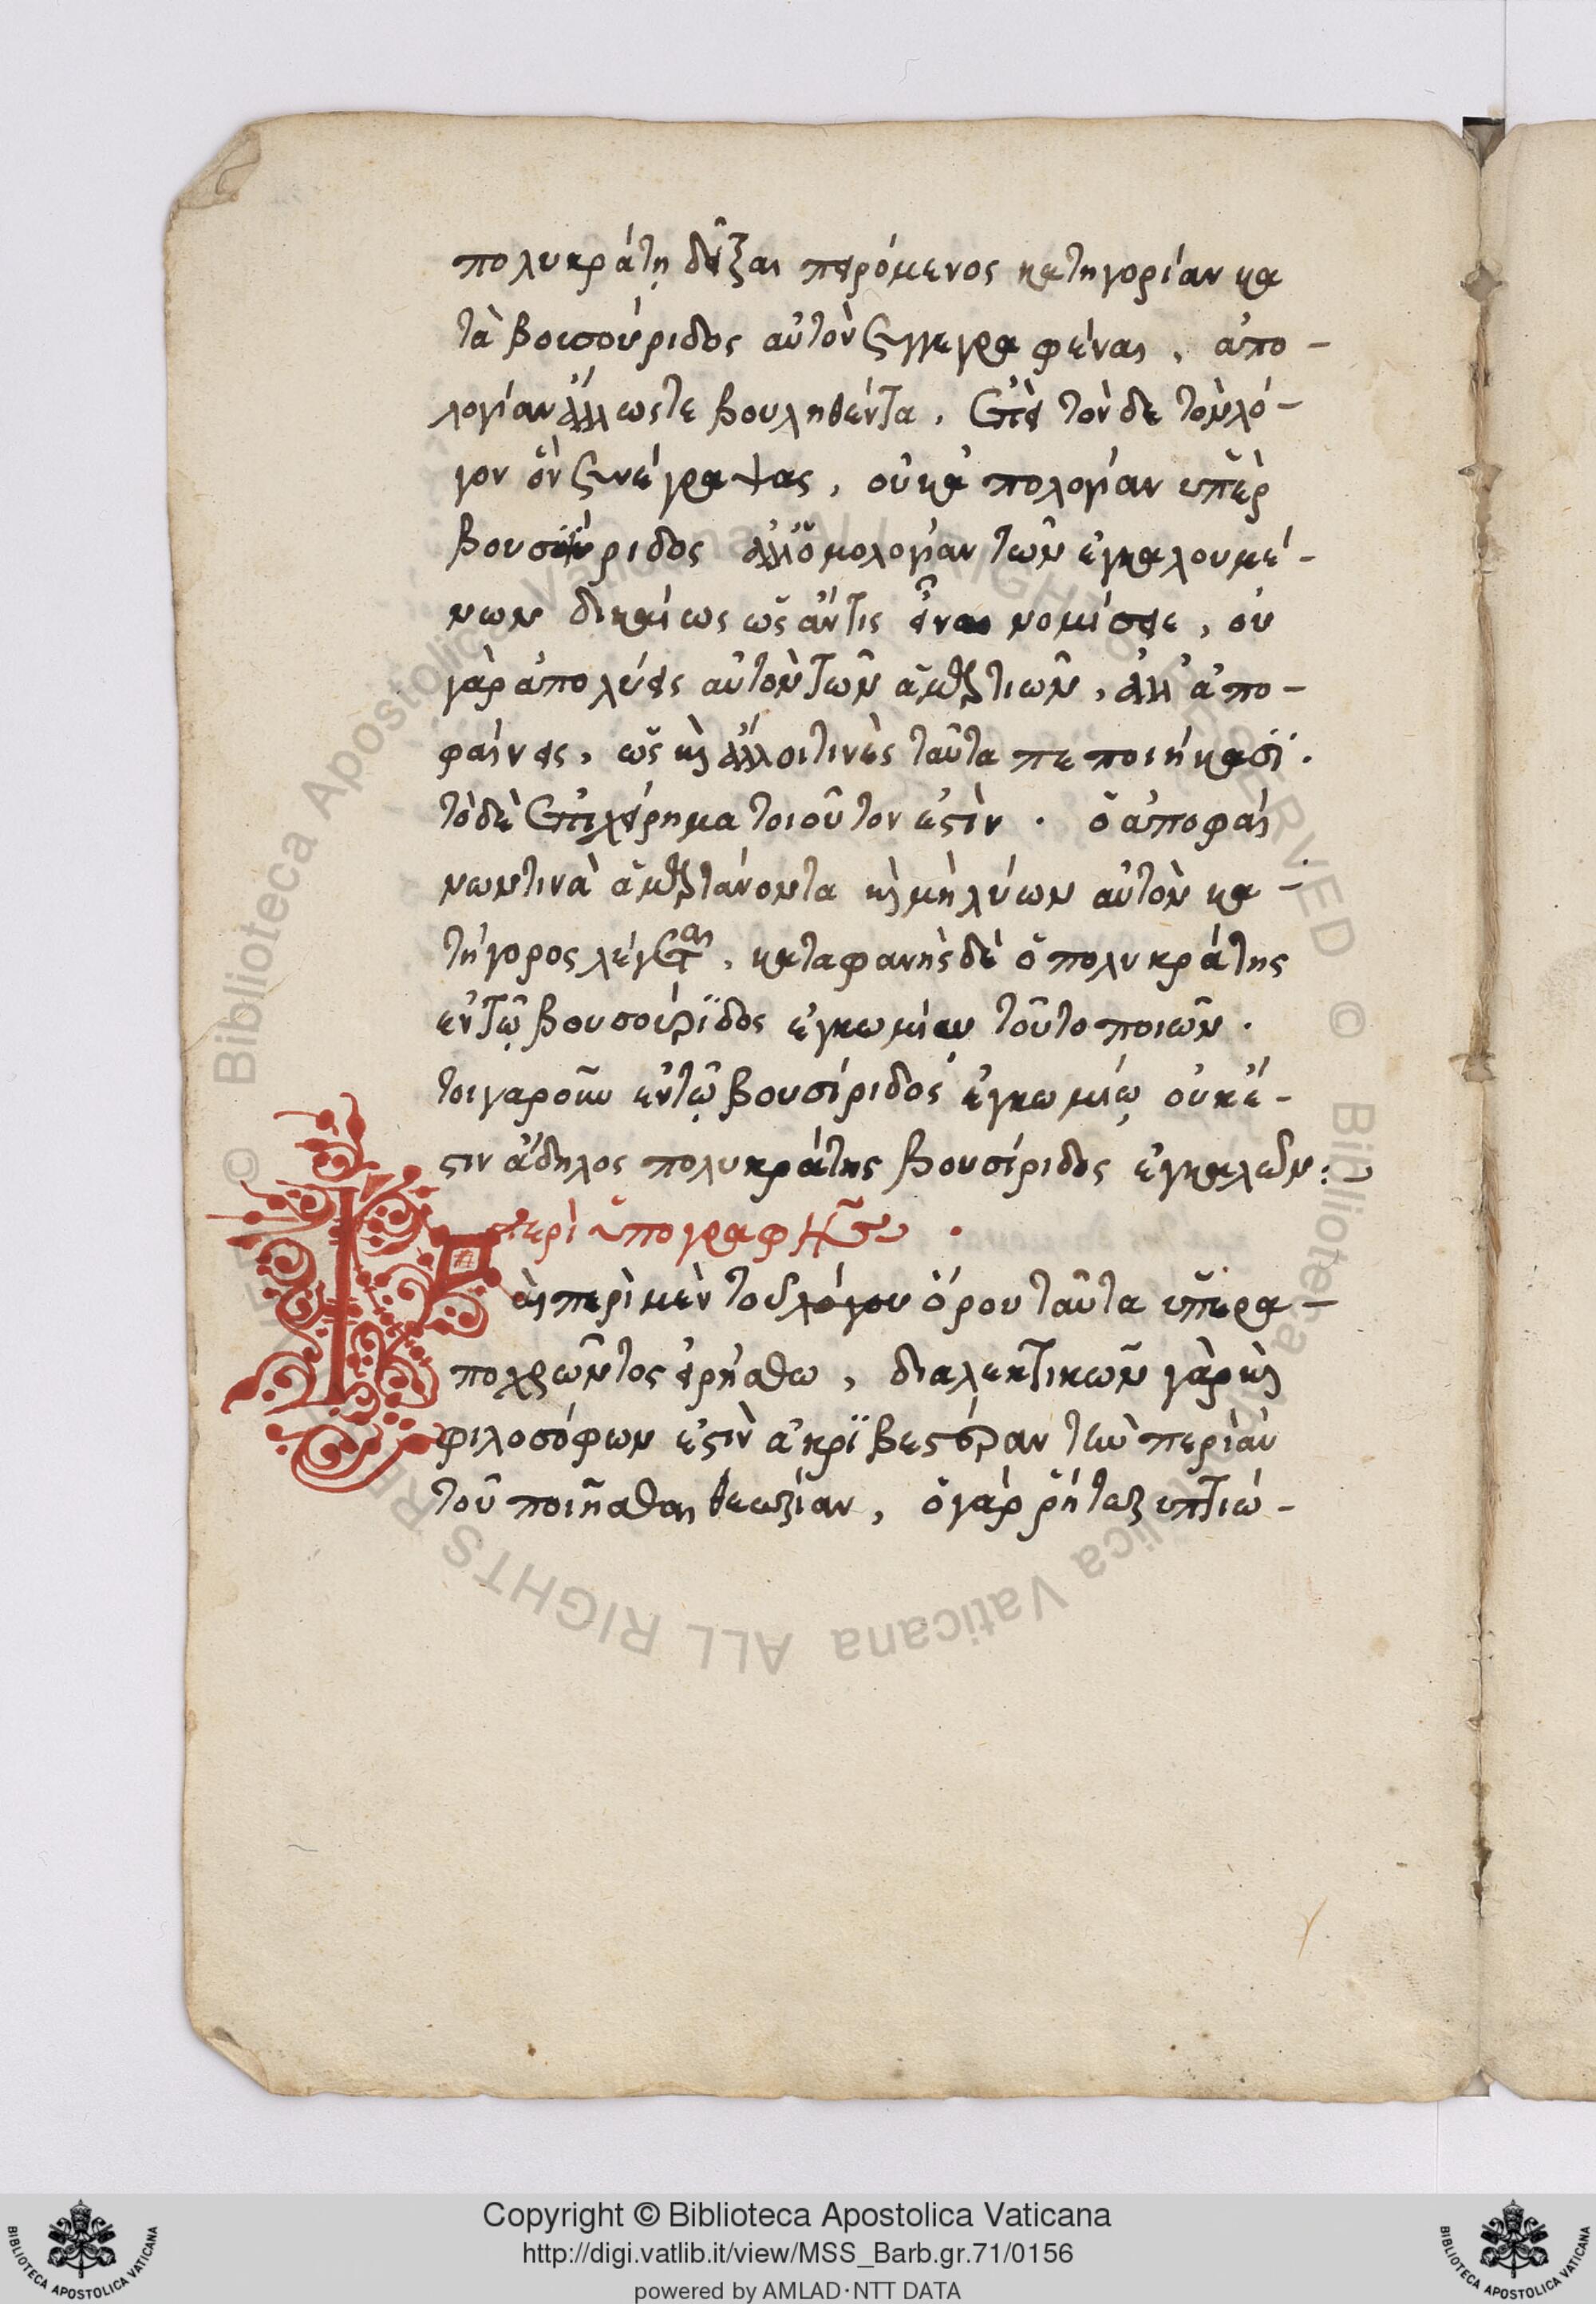 πολυκράτη δεῖξαι πειρόμενος κατηγορίαν κα
τὰ βουσούριδος αὐτὸν συγγεγραφέναι, ἀπο-
λογίαν ἄλλωστε βουληθέντα, ἐπεὶ τόνδε τὸν λό-
γον ὃν συνέγραψας, οὐκ ἀπολογίαν ὑπὲρ
βουσούριδος ἀλλ' ὁμολογίαν τῶν ἐγκαλουμέ-
νων δικαίως ὡς ἄν τις εἶναι νομίσειε, οὐ
γὰρ ἀπολύεις αὐτὸν τῶν ἁμαρτιῶν, ἀλλ' ἀπο-
φαίνεις, ὡς καὶ ἄλλοι τινὲς ταῦτα πεποιήκασϊ.
τὸ δὲ ἐπιχείρημα τοιοῦτον ἐστὶν. ὁ ἀποφαί
νων τινὰ ἁμαρτάνοντα καὶ μὴ λύων αὐτὸν κα-
τήγορος λέγεται, καταφανὴς δὲ ὁ πολυκράτης
ἐν τῷ βουσούριδος ἐγκωμίῳ τοῦτο ποιῶν.
τοιγαροῦν ἐν τῷ βουσίριδος ἐγκωμίῳ οὐκ ἔ-
στιν ἄδηλος πολυκράτης βουσίριδος ἐγκαλῶν:
περὶ ὑπογραφῆς.
Καὶ περὶ μὲν τοῦ λόγου ὅρου ταῦτα ὑπὲρ ἀ-
ποχρῶντος εἰρήσθω, διαλεκτικῶν γὰρ καὶ
φιλοσόφων ἐστὶν ἀκριβεστέραν τὴν περὶ αὐ
τοῦ ποιῆσθαι θεωρίαν, ὁ γὰρ ῥήτωρ ὑπτιώ-
Copyright © Biblioteca Apostolica Vaticana
http://digi.vatlib.it/view/MSS_Barb.gr.71/0156
powered by AMLAD·NTT DATA
BIBLIOTECA APOSTOLICA VATICANA
BIBLIOTECA APOSTOLICA VATICANA